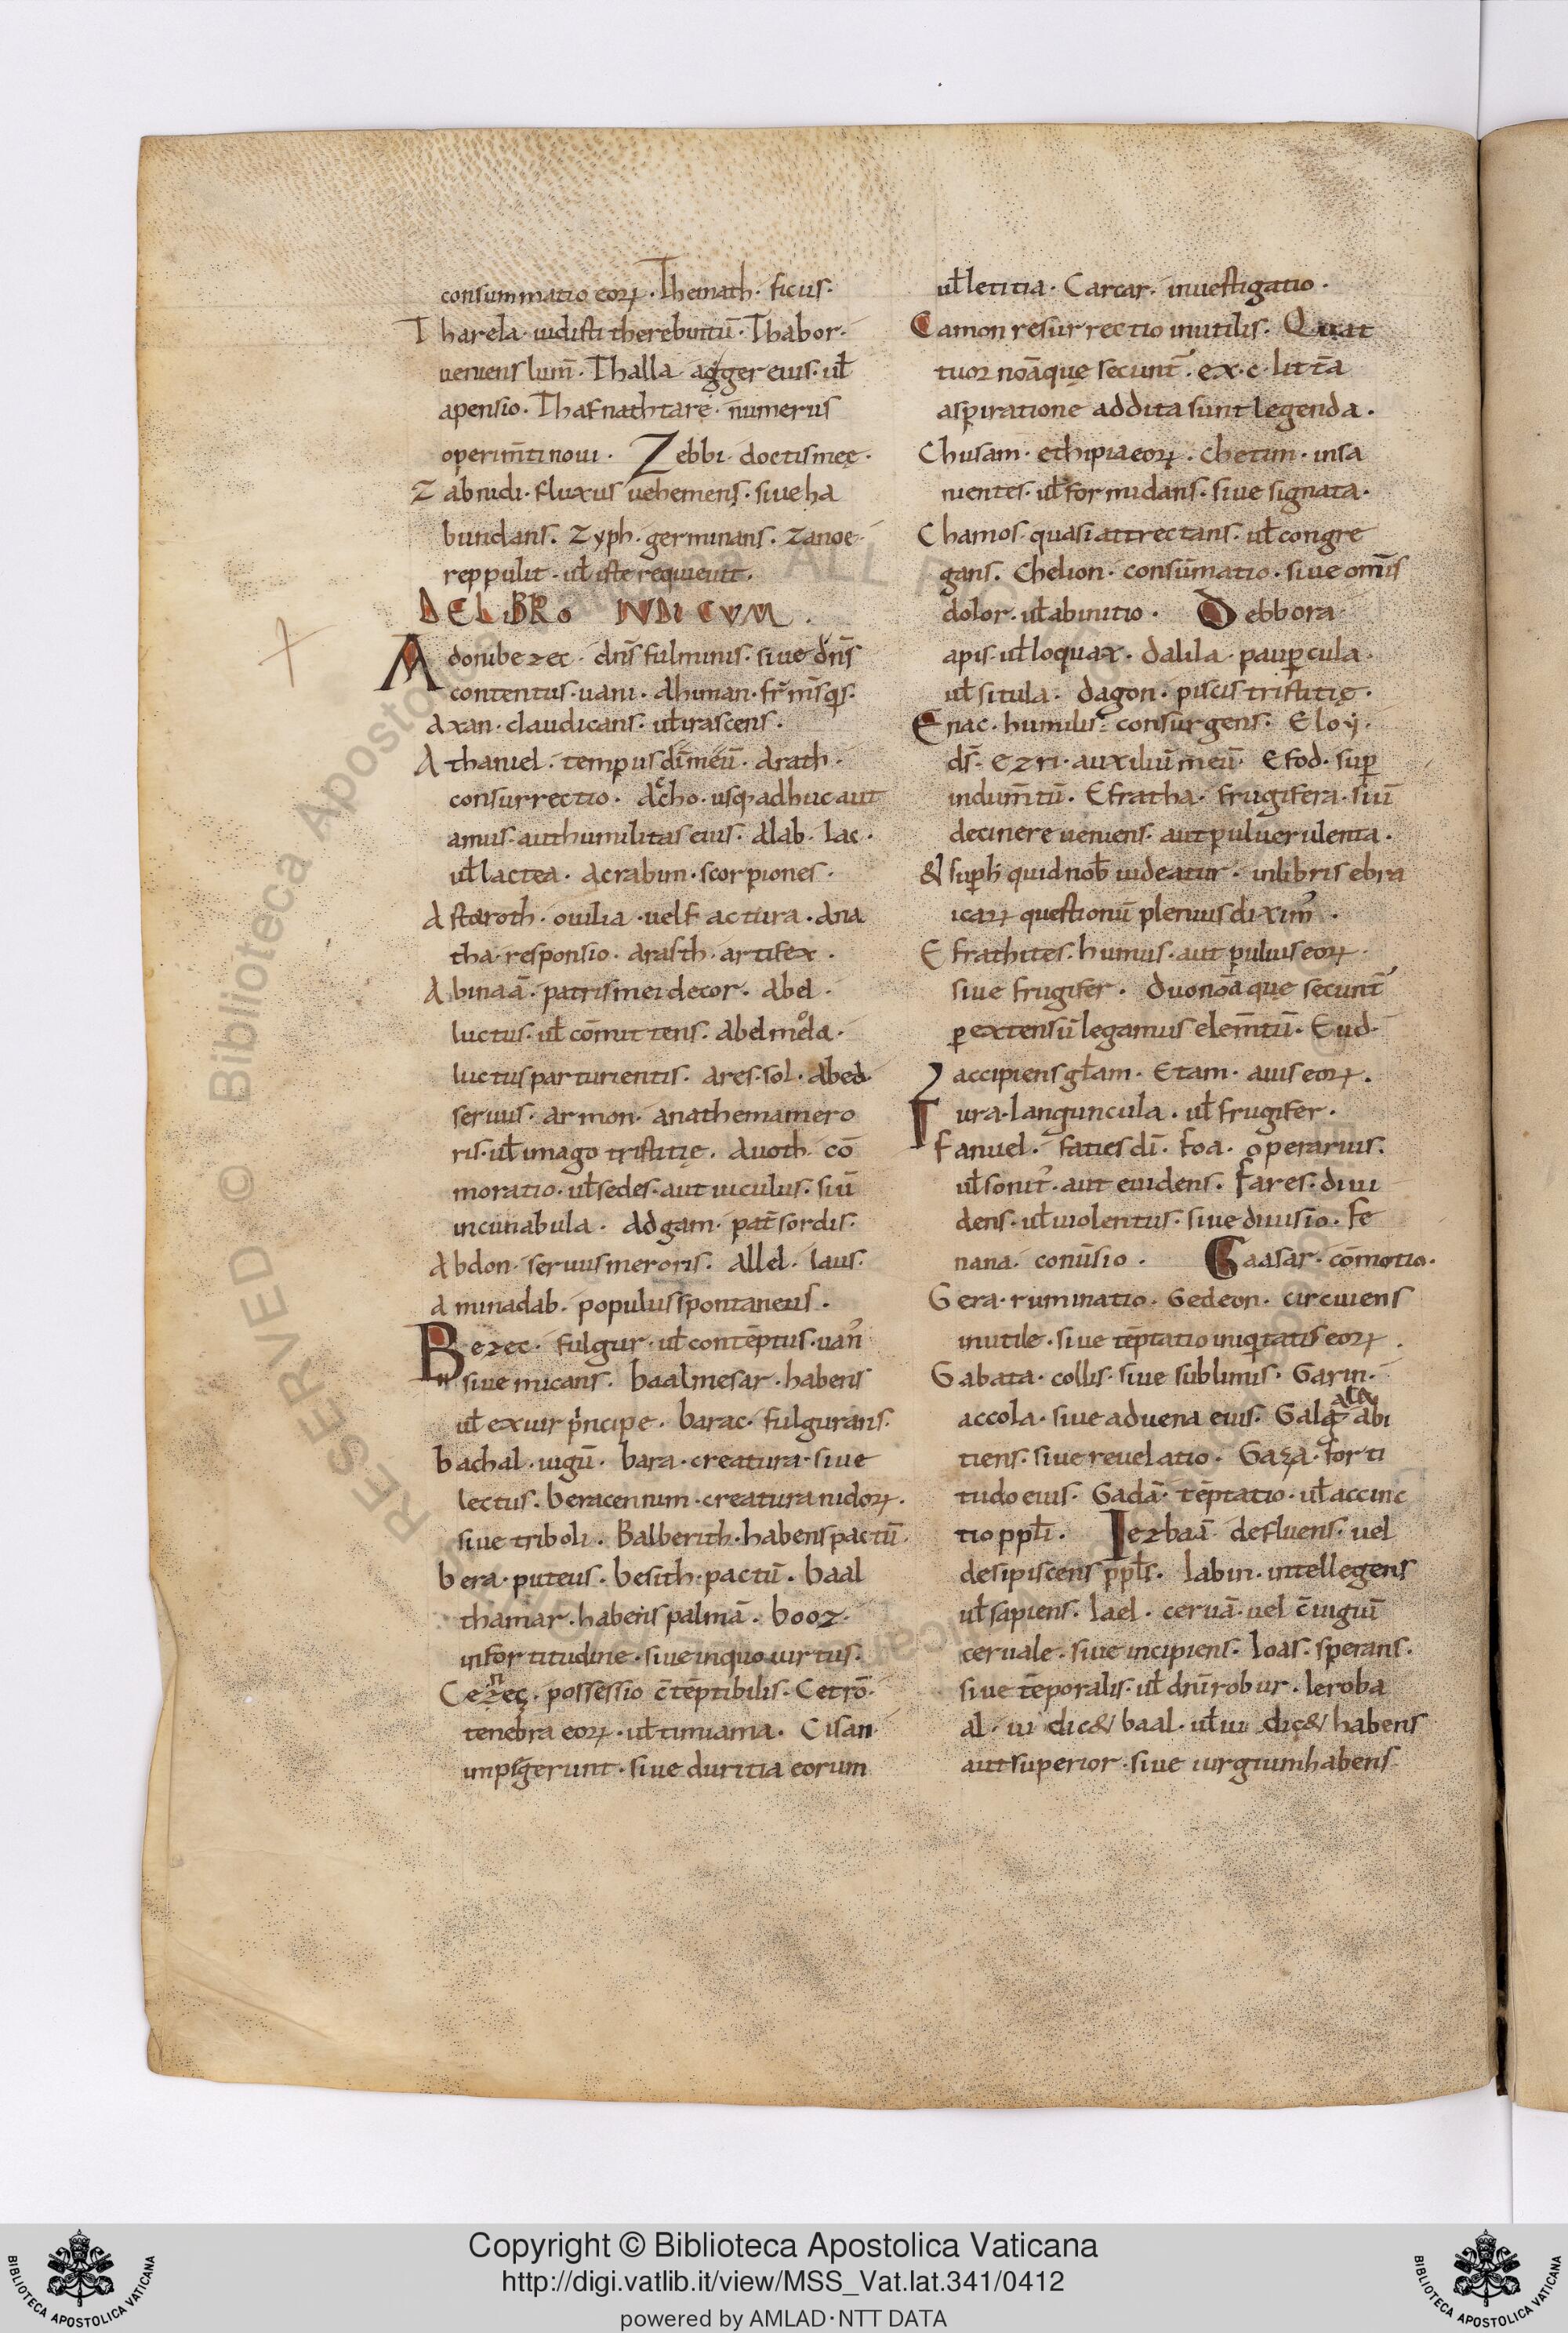 consummatio eoꝝ · Themath · ficus ·
Tharela · uidisti therebintū · Thabor ·
ueniens lum̄ · Thalla agger eius · ul̄
apensio · Thafnathtare · numerus
operim̄ti noui · Zebbi · doctis meę ·
Zabnidi · fluxus uehemens · siue ha
bundans · Zyph · germinans · Zanoe ·
reppulit · ul̄ iste requieuit ·
DE LIBRO IVDICVM ·
Adonibezec · dn̄s fulminis · siue dn̄s
contentus · uani · Ahiman · fr̄ m̄s q̄s ·
Axan · claudicans · ul̄ irascens ·
Athaniel · tempus dī meū · Arath ·
consurrectio · Accho · usq; adhuc aut
amus · aut humilitas eius · Alab · lac ·
ul̄ lactea · Acrabim · scorpiones ·
Astaroth · ouilia · uel factura · Ana
tha · responsio · Arasth · artifex ·
Abinaā · patris mei decor · Abel ·
luctus · ul̄ com̄ittens · Abelmola ·
luctus parturientis · Ares · sol · Abed ·
seruus · armon · anathema mero
ris · ul̄ imago tristitię · Auoth · cō
moratio · ul̄ sedes · aut uiculus · siū
incunabula · Adgam · pat̄ sordis ·
Abdon · seruus meroris · Allel · laus ·
Aminadab · populus spontaneus ·
Bezec · fulgur · ul̄ contēptus · uan᾽
siue micans · baalmesar · habens
ul̄ ex uir principe · barac · fulgurans ·
bachal · uigū · bara · creatura · siue
lectus · beracennim · creatura nidoꝝ ·
siue triboli · Balberith · habens pactū ·
bera · puteus · besith · pactū · baal
thamar · habens palmā · booz ·
in fortitudine · siue in quo uirtus ·
Cezneç · possessio c̄tēptibilis · Cetrō ·
tenebra eoꝝ · ul̄ timiama · Cisan ·
impegerunt · siue duritia eorum
ul̄ letitia · Carcar · inuestigatio ·
Camon resurrectio inutilis · Quat
tuor noāa quę secunt᾽ · ex · c · litt̄a
aspiratione addita sunt legenda ·
Chusam · ethipia eoꝝ · Chetim · insa
nientes · ul̄ formidans · siue signata ·
Chamos · quasi attrectans · ul̄ congre
gans · Chelion · consūmatio · siue omīs
dolor · ul̄ ab initio · Debbora ·
apis · ul̄ loquax · Dalila · paup̱cula ·
ul̄ situla · Dagon · piscis tristitię ·
Enac · humilis consurgens · Eloy ·
ds̄ · Ezri · auxiliū meū · Efod · sup̱
indum̄tū · Efratha · frugifera · siū
de cinere ueniens · aut puluerulenta ·
& sup̱ h̄ quid nob̄ uideatur · in libris ebra
icaꝝ questionū plenius diximᵘ ·
Efrathites · humus · aut puluis eoꝝ ·
siue frugifer · Duo nōa que secunt᾽
ꝑ extensū legamus elem̄tū · Eud ·
accipiens gl̄am · Etam · auis eoꝝ ·
Fura · languncula · ul̄ frugifer ·
Fanuel · faties dī · Foa · operarius ·
ul̄ sonit᾽ · aut euidens · Fares · diui
dens · ul̄ uiolentus · siue diuisio · Fe
nana · conūsio · Gaasar · cōmotio ·
Gera · ruminatio · Gedeon · circuiens
inutile · siue tēptatio iniq̇tatis eoꝝ ·
Gabata · collis · siue sublimis · Garin ·
accola · siue aduena eius · Gala abi
tiens · siue reuelatio · Gaza · forti
tudo eius · Gadā · tēptatio · ul̄ accinc
tio ppl̄i · Iezbaā defluens · uel
desipiscens ppl̄s · Iabin · intellegens
ul̄ sapiens · Iael · ceruā · uel c̄uigiū
ceruale · siue incipiens · Ioas · sperans ·
siue tēporalis · ul̄ dn̄i robur · Ieroba
al · iu dic& baal · ul̄ iu dic& habens
aut superior · siue iurgium habens
Copyright © Biblioteca Apostolica Vaticana
http://digi.vatlib.it/view/MSS_Vat.lat.341/0412
powered by AMLAD·NTT DATA